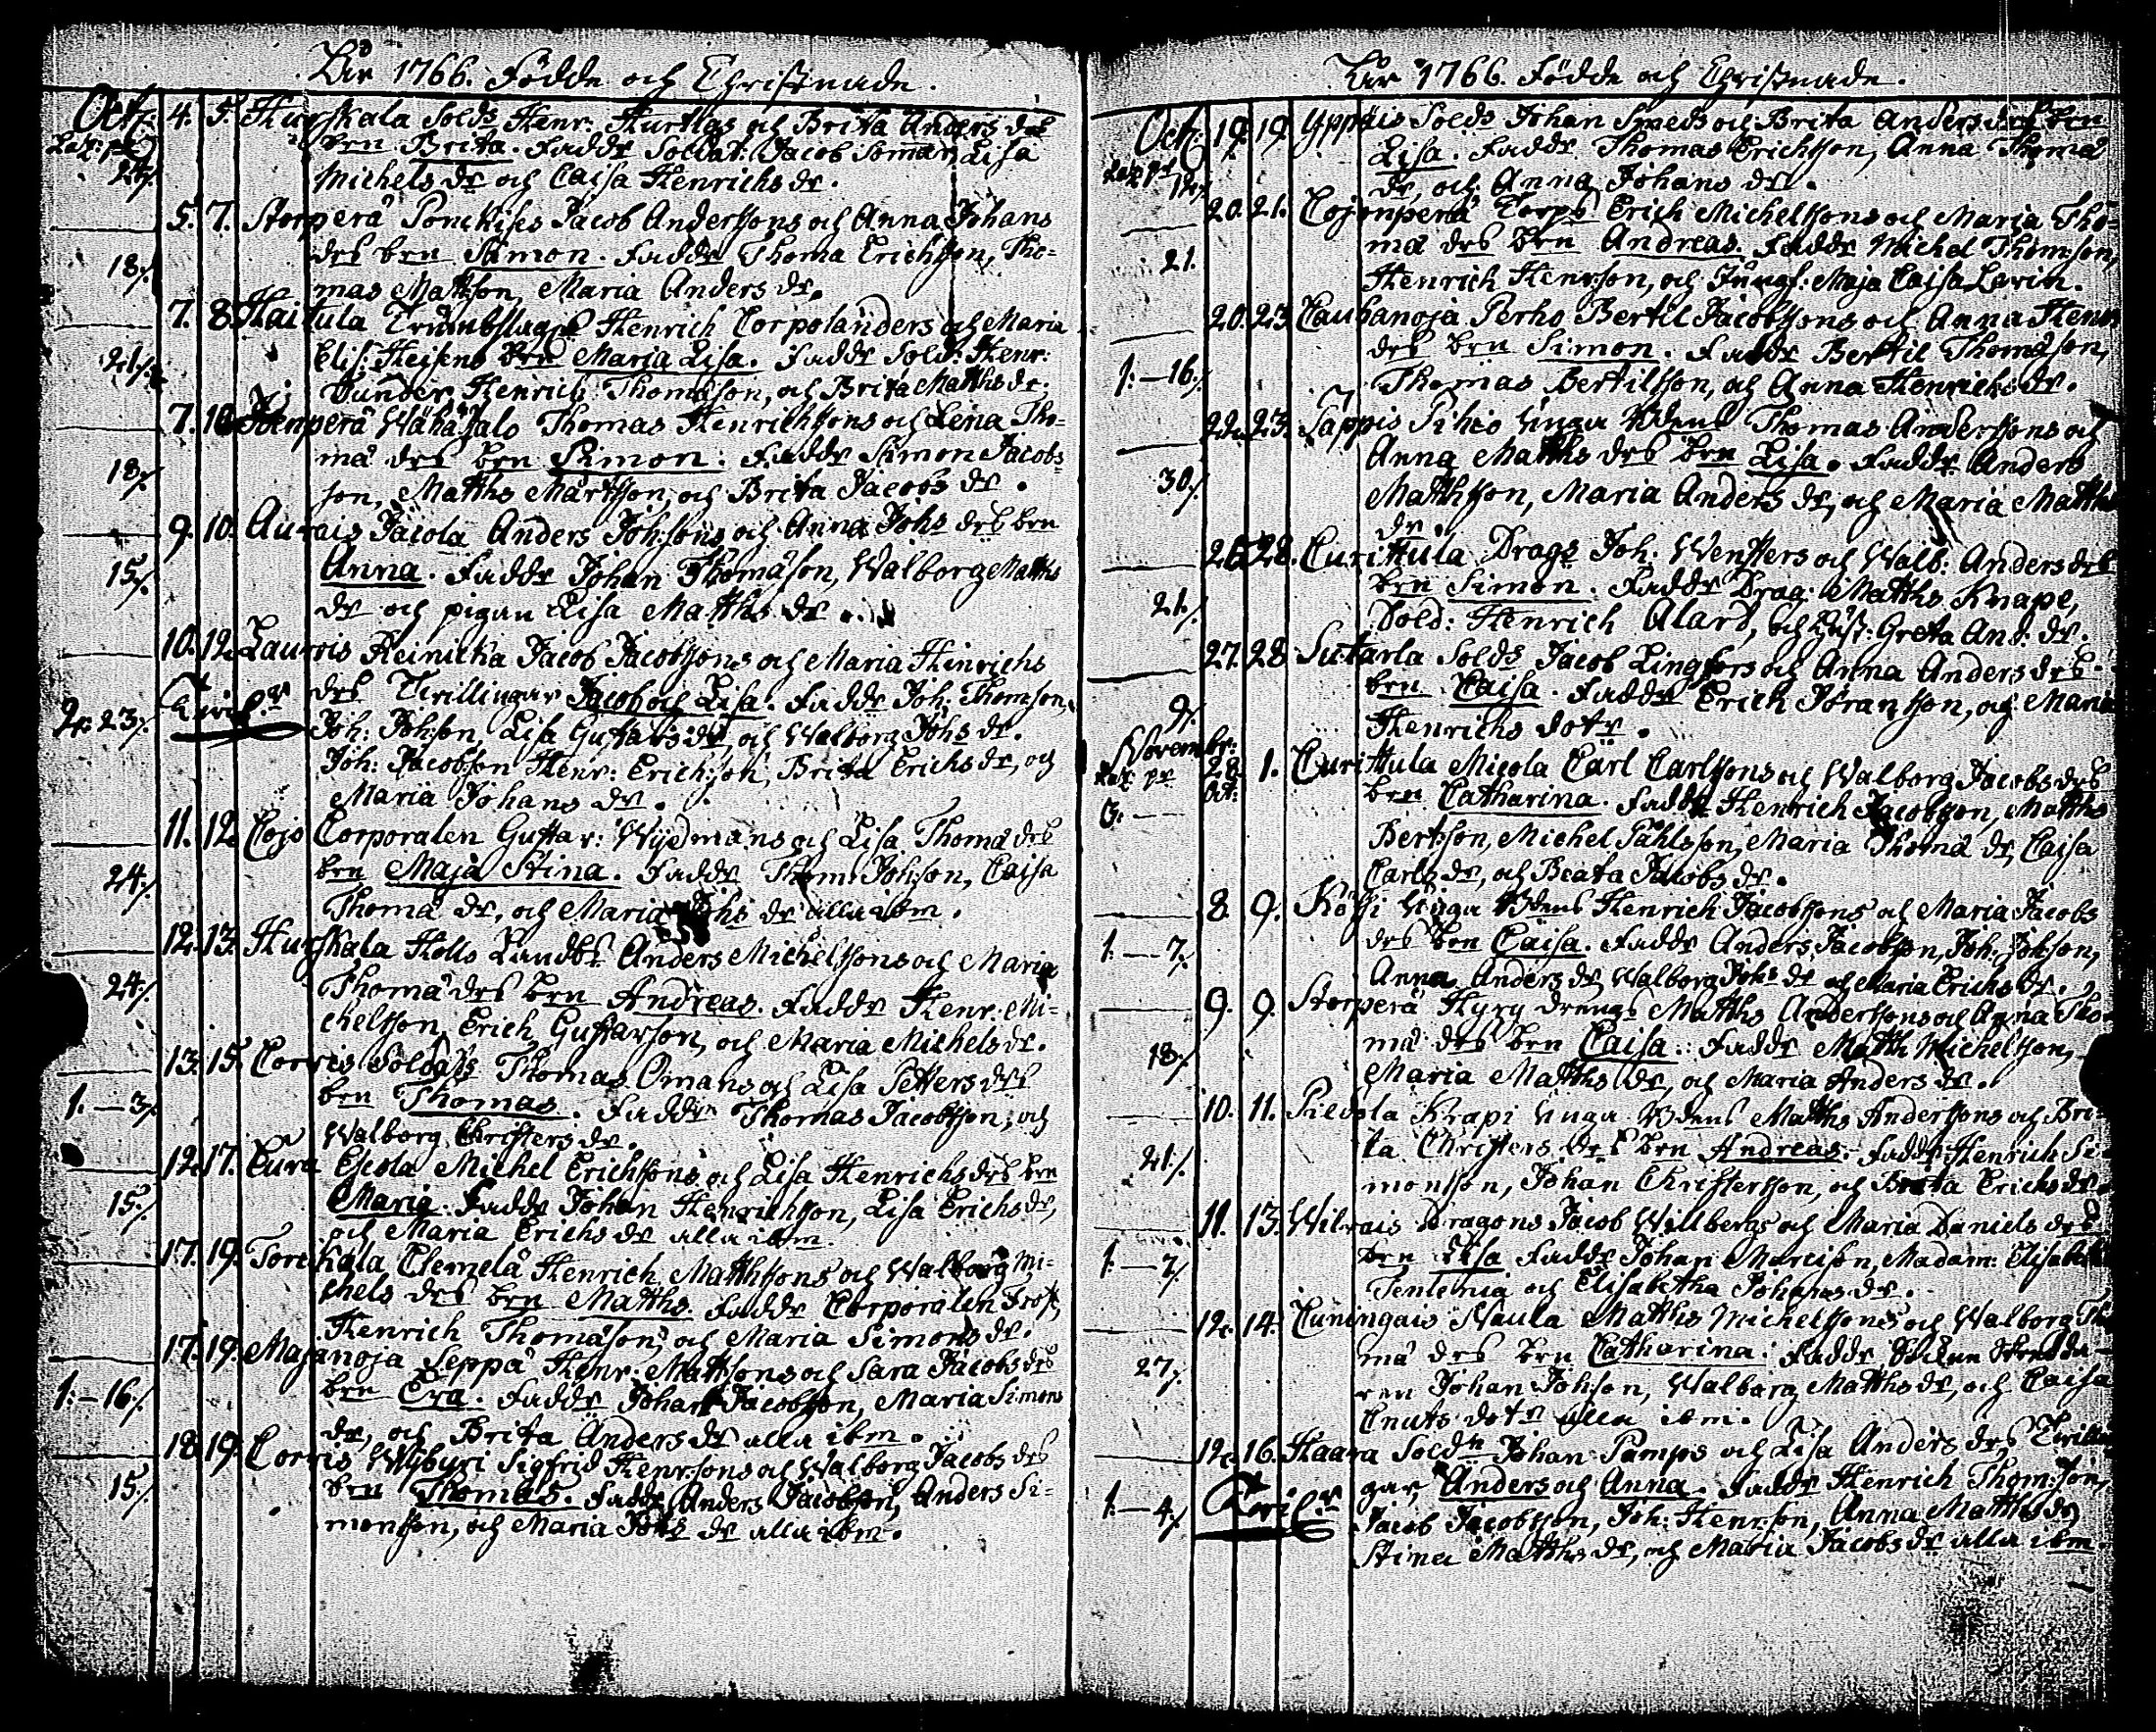 År 1766. Födde och Christnade.
Oct: 4. 5. Hurskala Solds Henr: Hurtigs och Brita Anders drs
24 brn Brita. Faddr Soldat: Jacob Soman, Lisa
Michels dr och Caisa Henrichs dr.
5. 7. Storperä Jacob Anderssons och Anna Johans
18 drs brn Simon. Faddr Thoma Erichsson, Tho-
mas Mattsson, Maria Anders dr.
7. 8. Haitula Trumbslagr Henrich Corpolanders och Maria
21 Elis: Heisens brn Maria Lisa. Faddr Sold: Henr:
Dunder, Henrich Thomason, och Brita Matths dr.
7. 10 Wähätalo Thomas Henrichssons och Lena Tho-
ma drs brn Simon. Faddr Simon Jacobs-
18 son, Matths Mårtsson, och Brita Jacobs dr.
9. 10. Aurais Jacola Anders Johssons och Anna Johs drs brn
15 Anna. Faddr Johan Thomason, Walborg Matths
dr och pigan Lisa Matths dr.
10. 12. Lauris Reinicka Jacob Jacobssons och Maria Hinrichs
drs Twillingar Jacob och Lisa. Faddr Joh: Thomson,
2: 23 Joh: Johsson Lisa Gustavs dr, och Walborg Johs dr.
Joh: Jacobsson Henr: Erichsson, Brita Erichs dr, och
Maria Johans dr.
11. 12. Cojo Corporalen Gustav: Wijdmans och Lisa Thoma drs
24 brn Maja Stina. Faddr Thom: Johsson, Caisa
Thoma dr, och Maria Johs dr alla ibm.
12. 13. Hurskala Hollo Landbs Anders Michelssons och Maria
24 Thoma drs brn Andreas. Faddr Henr: Mi-
chelsson, Erich Gustavsson, och Maria Michels dr.
13. 15. Corvis Soldats Thomas Omans och Lisa Petters drs
1:-3 brn Thomas. Faddr Thomas Jacobsson, och
Walborg Christers dr.
12. 17. Cura Michel Erichssons och Lisa Henrichs drs brn
15 Maria. Faddr Johan Henrichsson, Lisa Erichs dr,
och Maria Erichs dr alla ibm
17. 19. Clemelä Henrich Matthssons och Walborg Mi-
chels drs brn Matths. Faddr Corporalen Frost,
Henrich Thomason, och Maria Simons dr.
17. 19. Majanoja Seppä Henr: Mattssons och Sara Jacobs drs
1:-16 brn Eva. Faddr Johan Jacobsson, Maria Simons
dr, och Brita Anders dr alla ibm.
18. 19. Corvis Wijbyri Sigfrid Henrssons och Walborg Jacobs drs
15 brn Thomas. Faddr Anders Jacobsson, Anders Si-
monsson, och Maria Johs dr alla ibm.
År 1766. Födde och Christnade.
Oct: 19. 19. Yppäis Solds Johan Smeds och Brita Anders drs brn
Lisa. Faddr Thomas Erichsson, Anna Thoma
12 dr, och Anna Johans dr.
20. 21. Cojonperä Torps Erich Michelssons och Maria Tho-
21. ma drs brn Andreas. Faddr Michel Thomson,
Henrich Henrsson, och Jungf: Maja Caisa Levin.
20. 23. Cauhanoja Perho Bertil Jacobssons och Anna Henr
drs brn Simon. Faddr Bertil Thomason,
1:-16 Thomas Bertilsson, och Anna Henrichs dr.
22. 23. Pappis Unga Thomas Anderssons och
Anna Matths drs brn Lisa. Faddr Anders
30 Matthsson, Maria Anders dr, och Maria Matths
dr.
28. Curittula Drags Joh: Wensters och Walb: Anders drs
brn Simon. Faddr Drag: Matths Knape,
21. Sold: Henrich Alard, och Hust: Greta And: dr.
27. 28 Sutarla Solds Jacob Lingfors och Anna Anders drs
brn Caisa. Faddr Erich Jöransson, och Maria
9. Henrichs dotr.
November:
28. Oct: 1. Curittula Micola Carl Carlssons och Walborg Jacobs drs
brn Catharina. Faddr Henrich Jacobsson, Matths
6:- Bertsson, Michel Påhlsson, Maria Thoma dr, Caisa
Carls dr, och Beata Jacobs dr.
8. 9. Unga Henrich Jacobssons och Maria Jacobs
1:-7 drs brn Caisa. Faddr Anders Jacobsson, Joh: Johsson,
Anna Anders dr, Walborg Johs dr och Maria Erichs dr.
9. 9. Storperä Hyry drengs Matths Anderssons och Anna Tho-
18 ma drs brn Caisa. Faddr Matth Michelsson,
Maria Matths dr, och Maria Anders dr.
10. 11. Pilola Krapi Unga Matths Anderssons och Bri-
21 ta Christers drs brn Andreas. Faddr Henrich Si-
monsson, Johan Christersson, och Beata Erichs dr.
11. 13. Wilvais Dragons Jacob Willbergs och Maria Daniels drs
1:-7 brn Lisa Faddr Johan Marcisson, Madam: Elisabeth
och Elisabetha Johans dr.
12. 14. Cuningais Waula Matths Michelssons och Walborg Tho
27 ma drs brn Catharina. Faddr
Johan Johsson, Walborg Matths dr, och Caisa
Cnuts dotr alla ibm.
12. 16. Haara Soldn Johan Pamps och Lisa Anders drs Twillin
gar, Anders och Anna. Faddr Henrich Thomsson,
1:-4 Jacob Jacobsson, Joh: Henrsson, Anna Matths dr,
Stina Matths dr, och Maria Jacobs dr alla ibm.